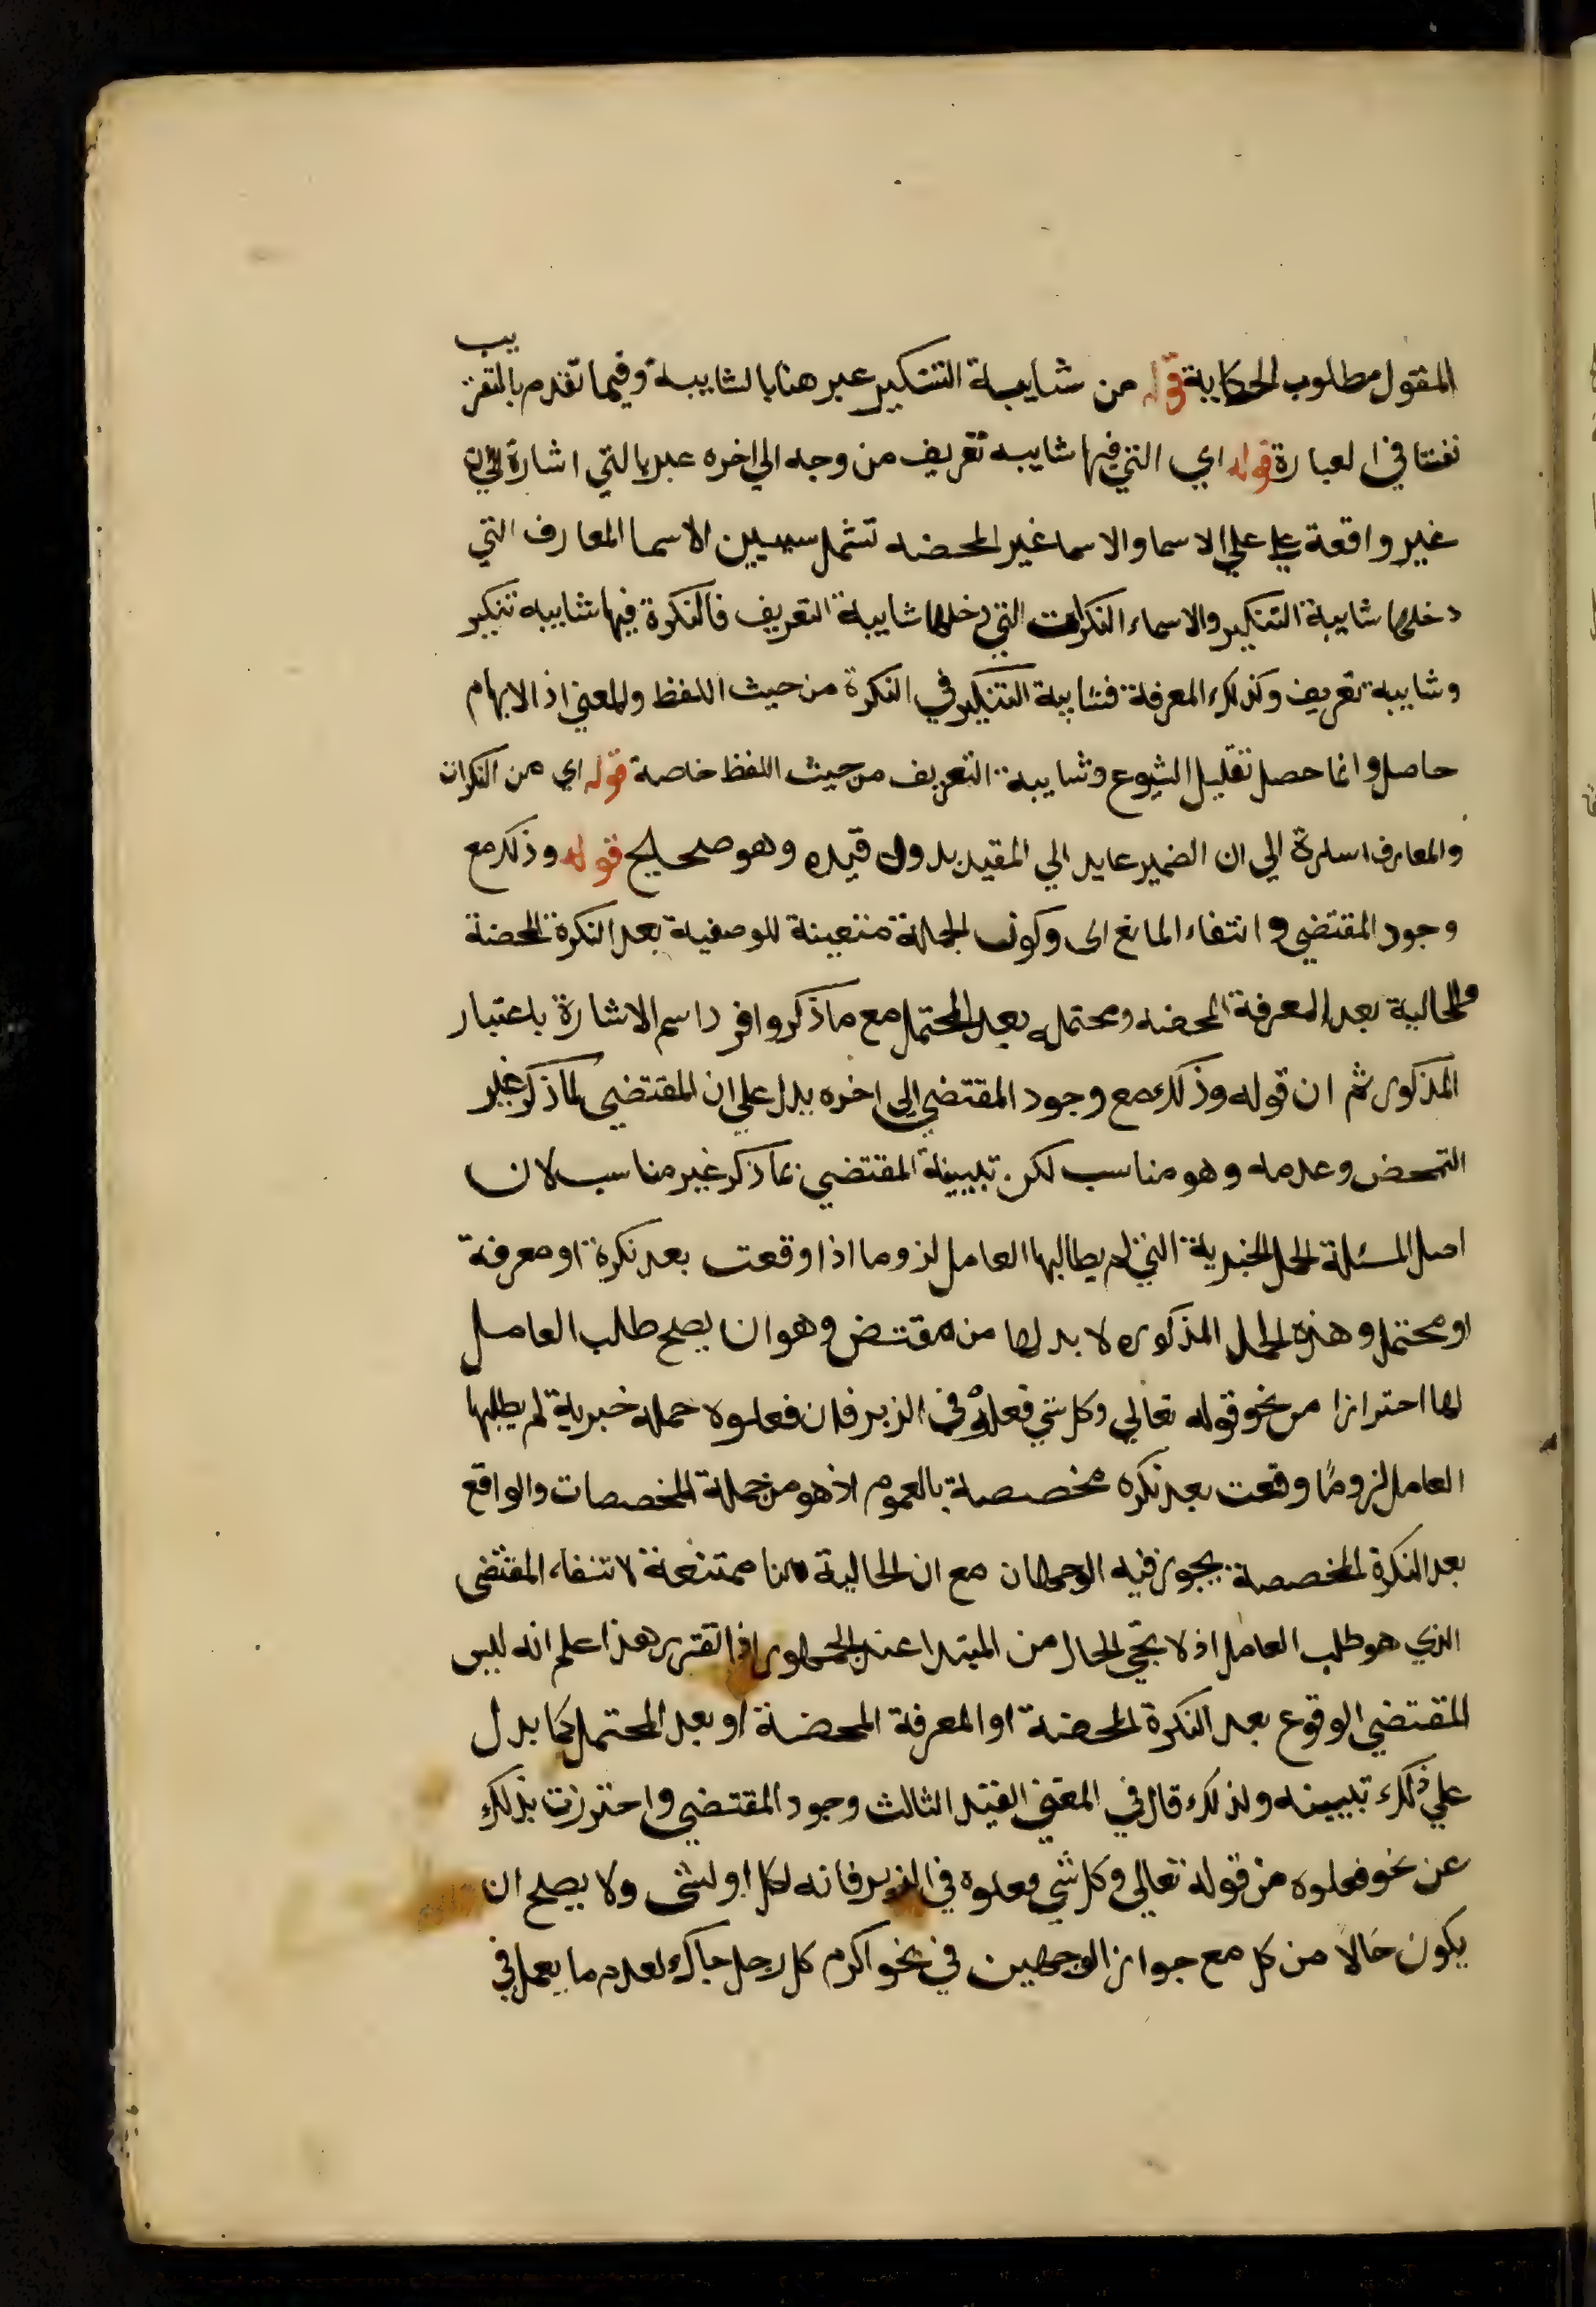 المقول مطلوب الحكاية قوله من شايبة التنكير عبر هنا بالشايبة وفيما تقدم بالتقريب
تفننا في العبارة قوله اي التي فيها شايبه تعريف من وجه الي اخره عبر بالتي اشارة الي ان
غير واقعة علي الاسما والاسما غير المحضه تشمل سيين الاسما المعارف التي
دخلها شايبة التنكير والاسماء النكرات التي دخلها شايبة التعريف فالنكرة فيها شايبه تنكير
وشايبة تعريف وكذلك المعرفة فشايبة التنكير في النكرة من حيث اللفظ والمعني اذ الابهام
حاصل وانما حصل تقليل الشيوع وشايبة التعريف من حيث اللفظ خاصة قوله اي من النكرات
والمعارف اسارة الي ان الضمير عايد الي المقيد بدون قيده وهو صحيح قوله وذلك مع
وجود المقتضي وانتفاء المانع اي وكون الجملة متعينة للوصفية بعد النكرة المحضة
والحالية بعد المعرفة المحضه ومحتمله بعد المحتمل مع ما ذكر وافرد اسم الاشارة باعتبار
المذكور ثم ان قوله وذلك مع وجود المقتضي الي اخره يدل علي ان المقتضي لما ذكر غير
التمحض وعدمه وهو مناسب لكن تبيينه المقتضي بما ذكر غير مناسب لان
اصل المسئلة الجمل الخبرية التي لم يطالبها العامل لزوما اذا وقعت بعد نكرة او معرفة
او محتمل وهذه الجمل المذكوره لا بد لها من مقتض وهو ان يصح طلب العامل
لها احترازا من نحو قوله تعالي وكل شي فعلوه في الزبر فان فعلوه جمله خبرية لم يطلبها
العامل لزومًا وقعت بعد نكره مخصصة بالعموم اذ هو من جملة المخصصات والواقع
بعد النكرة المخصصة يجوز فيه الوجهان مع ان الحالية هنا ممتنعة لانتفاء المقتضي
الذي هو طلب العامل اذ لا يجي الحال من المبتدا عند الجمهور اذا تقرر هذا علم انه ليس
المقتضي الوقوع بعد النكرة المحضة او المعرفة المحضة او بعد المحتمل كما يدل
علي ذلك تبيينه ولذلك قال في المغني القيد الثالث وجود المقتضي واحترزت بذلك
عن نحو فعلوه من قوله تعالي وكل شي فعلوه في الزبر فانه لكل او لشي ولا يصلح ان
يكون حالا من كل مع جواز الوجهين في نحو اكرم كل رجل جاك لعدم ما يعمل في